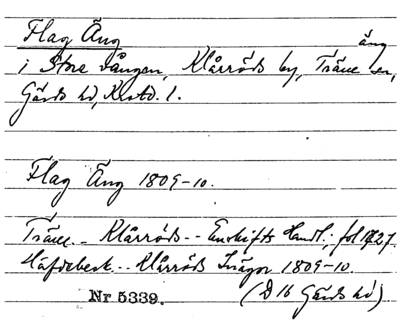 Flag Äng
äng
i Stora Vången, Klårröds by, Träne sn,
Gärds hd, Krstd. l.
Flag Äng 1809-10.
Träne - Klårröds - Enskifts Handl., fol 27.
Häfdebesk. - Klårröds Inägor 1809-10.
Nr 5339. (D 16 Gärds hd)